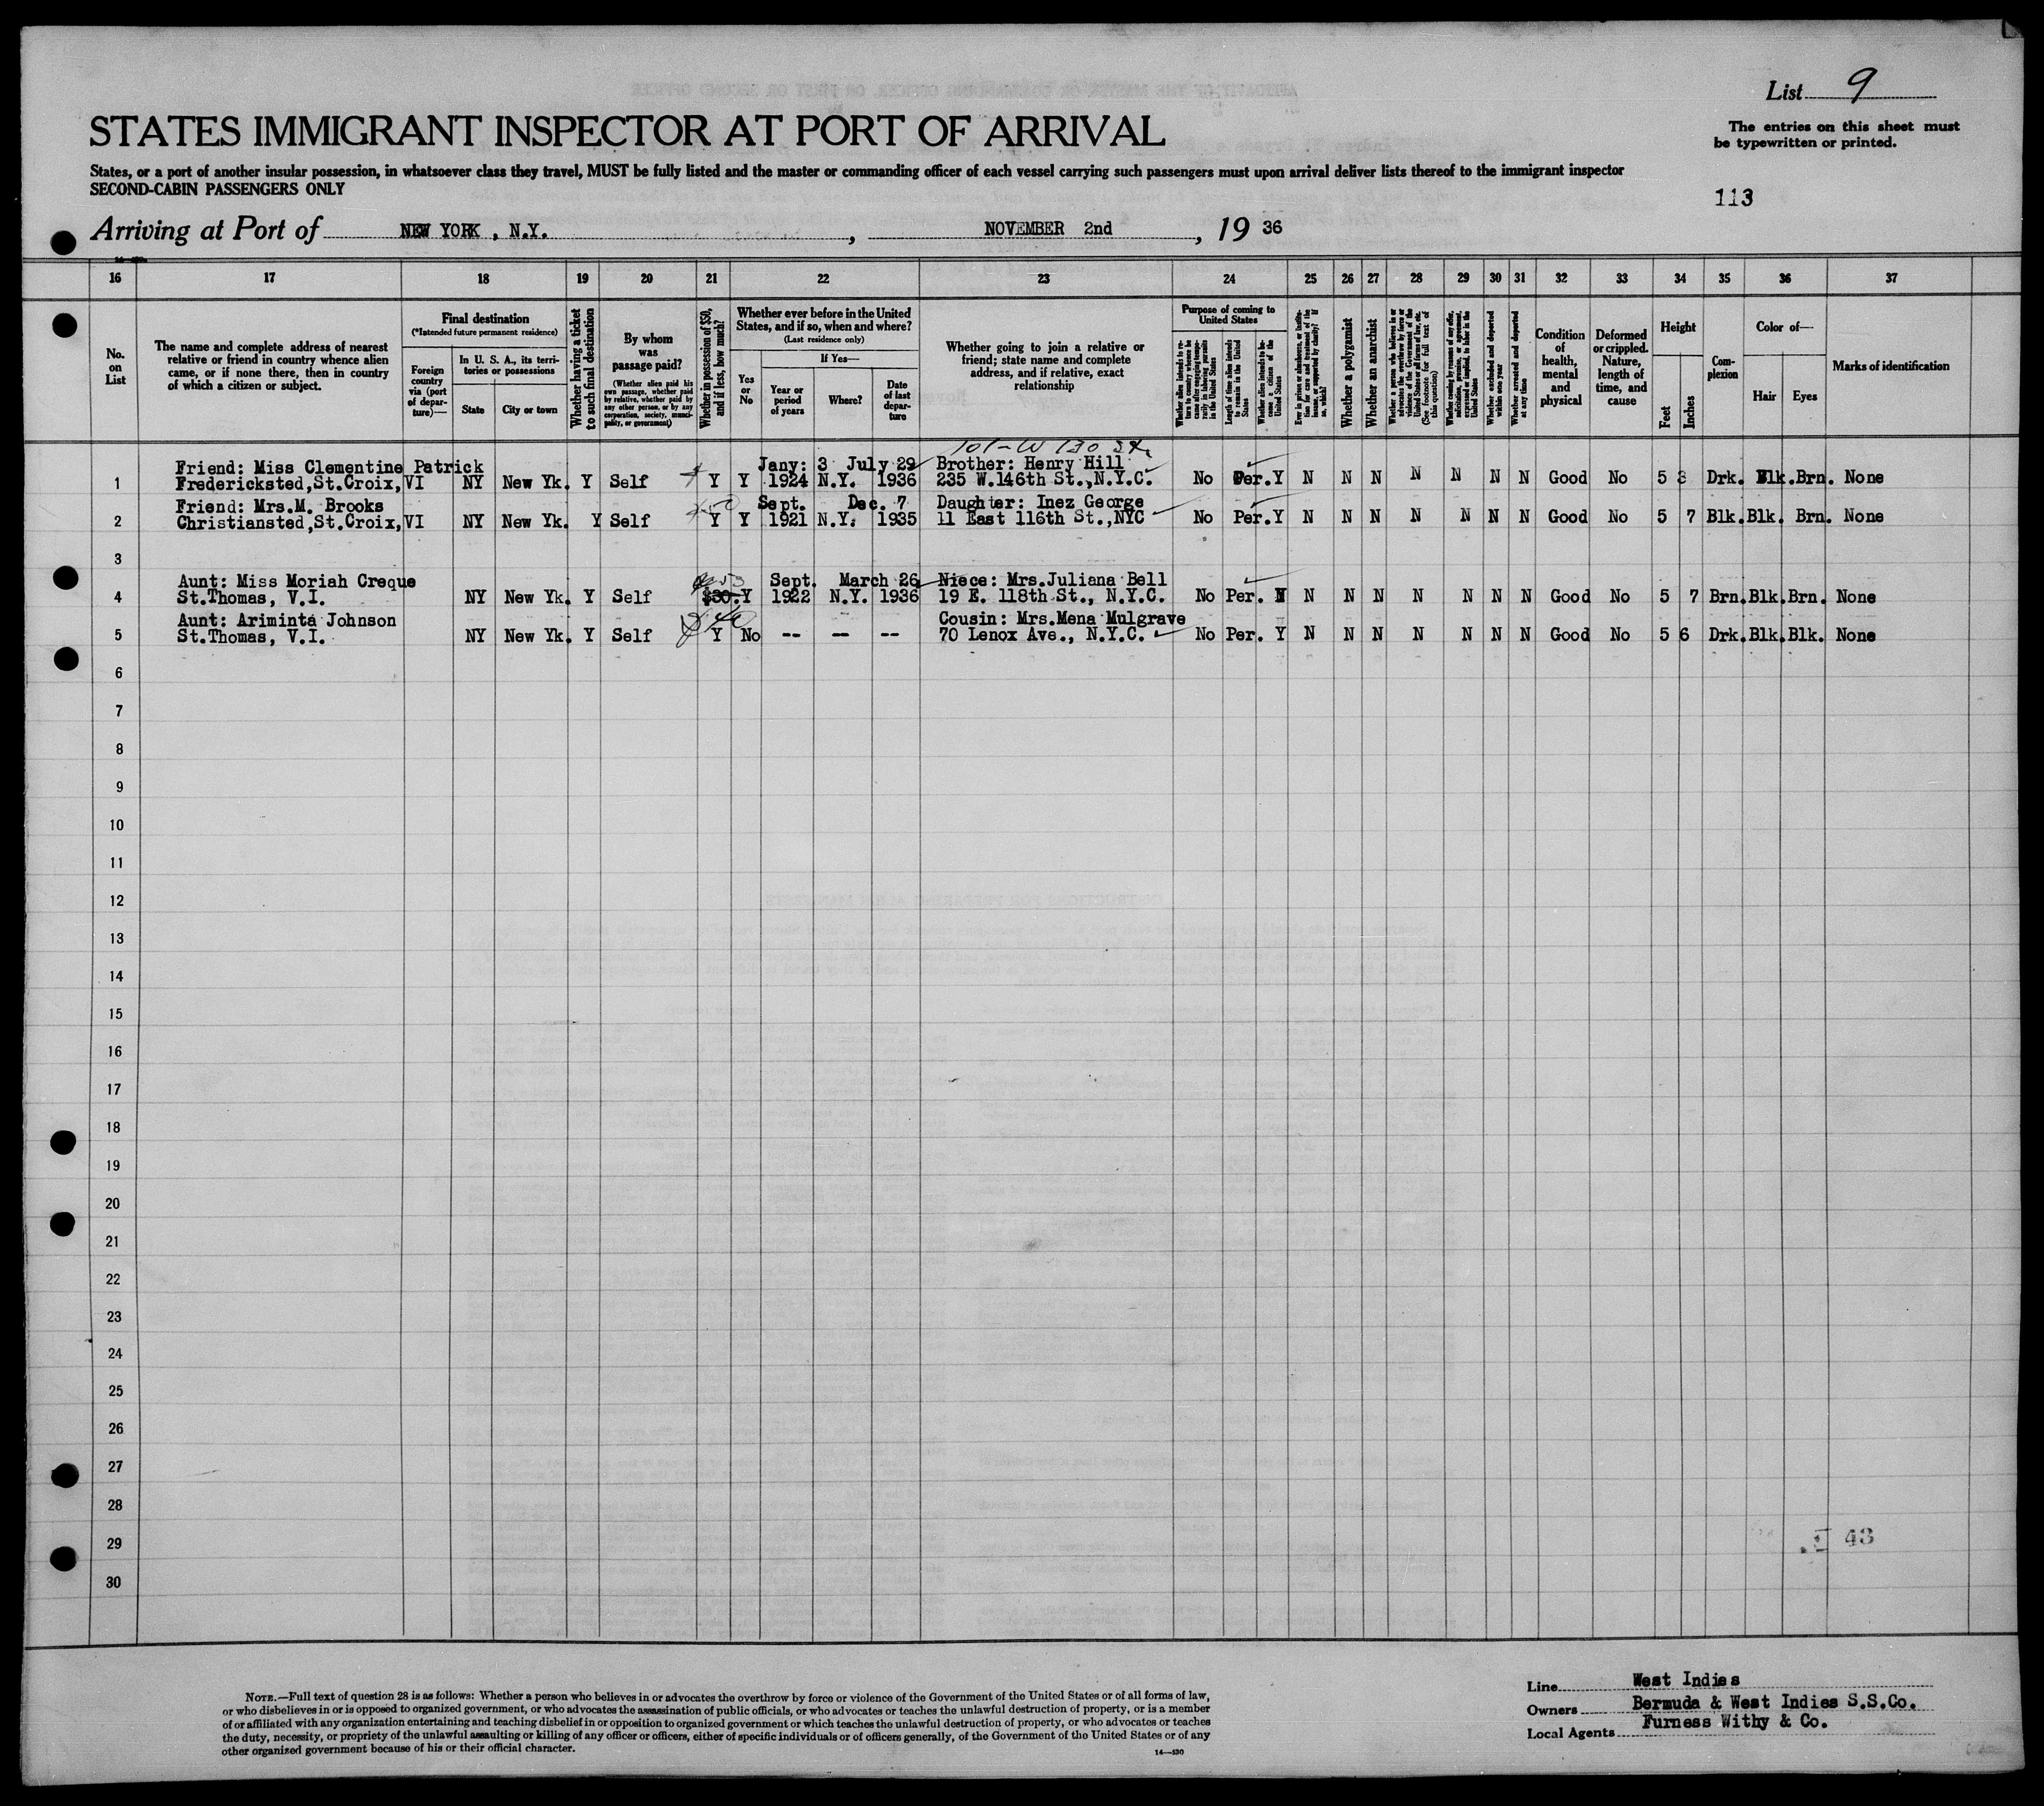 List 9
STATES IMMIGRANT INSPECTOR AT PORT OF ARRIVAL
The entries on this sheet must
be typewritten or printed.
States, or a port of another insular possession, in whatsoever class they travel, MUST be fully listed and the master or commanding officer of each vessel carrying such passengers must upon arrival deliver lists thereof to the immigrant inspector
SECOND-CABIN PASSENGERS ONLY
113
Arriving at Port of NEW YORK, N.Y., NOVEMBER 2nd, 1936
16 17 18 19 20 21 22 23 24 25 26 27 28 29 30 31 32 33 34 35 36 37
No. on List
The name and complete address of nearest relative or friend in country whence alien came, or if none there, then in country of which a citizen or subject.
Final destination
(*Intended future permanent residence)
Foreign country via (port of departure)—
In U. S. A., its territories or possessions
State
City or town
Whether having a ticket to such final destination
By whom was passage paid?
(Whether alien paid his own passage, whether paid by relative, whether paid by any other person, or by any corporation, society, municipality, or government)
Whether in possession of $50, and if less, how much?
Whether ever before in the United States, and if so, when and where?
(Last residence only)
Yes or No
If Yes—
Year or period of years
Where?
Date of last departure
Whether going to join a relative or friend; state name and complete address, and if relative, exact relationship
Purpose of coming to United States
Whether alien intends to return to country whence he came after engaging temporarily in laboring pursuits in the United States
Length of time alien intends to remain in the United States
Whether alien intends to become a citizen of the United States
Ever in prison or almshouse, or institution for care and treatment of the insane, or supported by charity? If so, which?
Whether a polygamist
Whether an anarchist
Whether a person who believes in or advocates the overthrow by force or violence of the Government of the United States or all forms of law, etc. (See footnote for full text of this question)
Whether coming by reasons of any offer, solicitation, promise, or agreement, expressed or implied, to labor in the United States
Whether excluded and deported within one year
Whether arrested and deported at any time
Condition of health, mental and physical
Deformed or crippled. Nature, length of time, and cause
Height
Feet
Inches
Complexion
Color of—
Hair
Eyes
Marks of identification
101-W 130 St.
Friend: Miss Clementine Patrick Jany: 3 July 29 Brother: Henry Hill
1 Fredericksted,St.Croix,VI NY New Yk. Y Self Y Y 1924 N.Y. 1936 235 W.146th St.,N.Y.C. No Per.Y N N N N N N N Good No 5 3 Drk. Blk.Brn. None
Friend: Mrs.M. Brooks 50 Sept. Dec. 7 Daughter: Inez George
2 Christiansted,St.Croix,VI NY New Yk. Y Self Y Y 1921 N.Y. 1935 11 East 116th St.,NYC No Per.Y N N N N N N N Good No 5 7 Blk.Blk. Brn. None
3
Aunt: Miss Moriah Creque Sept. March 26 Niece: Mrs.Juliana Bell
4 St.Thomas, V.I. NY New Yk. Y Self $30.Y 1922 N.Y. 1936 19 E. 118th St., N.Y.C. No Per. Y N N N N N N N Good No 5 7 Brn.Blk.Brn. None
Aunt: Ariminta Johnson Cousin: Mrs.Mena Mulgrave
5 St.Thomas, V.I. NY New Yk. Y Self Y No -- -- -- 70 Lenox Ave., N.Y.C. No Per. Y N N N N N N N Good No 5 6 Drk.Blk.Blk. None
6
7
8
9
10
11
12
13
14
15
16
17
18
19
20
21
22
23
24
25
26
27
28
29
43
30
NOTE.—Full text of question 28 is as follows: Whether a person who believes in or advocates the overthrow by force or violence of the Government of the United States or of all forms of law,
or who disbelieves in or is opposed to organized government, or who advocates the assassination of public officials, or who advocates or teaches the unlawful destruction of property, or is a member
of or affiliated with any organization entertaining and teaching disbelief in or opposition to organized government or which teaches the unlawful destruction of property, or who advocates or teaches
the duty, necessity, or propriety of the unlawful assaulting or killing of any officer or officers, either of specific individuals or of officers generally, of the Government of the United States or of any
other organized government because of his or their official character.
14—430
Line West Indies
Owners Bermuda & West Indies S.S.Co.
Local Agents Furness Withy & Co.